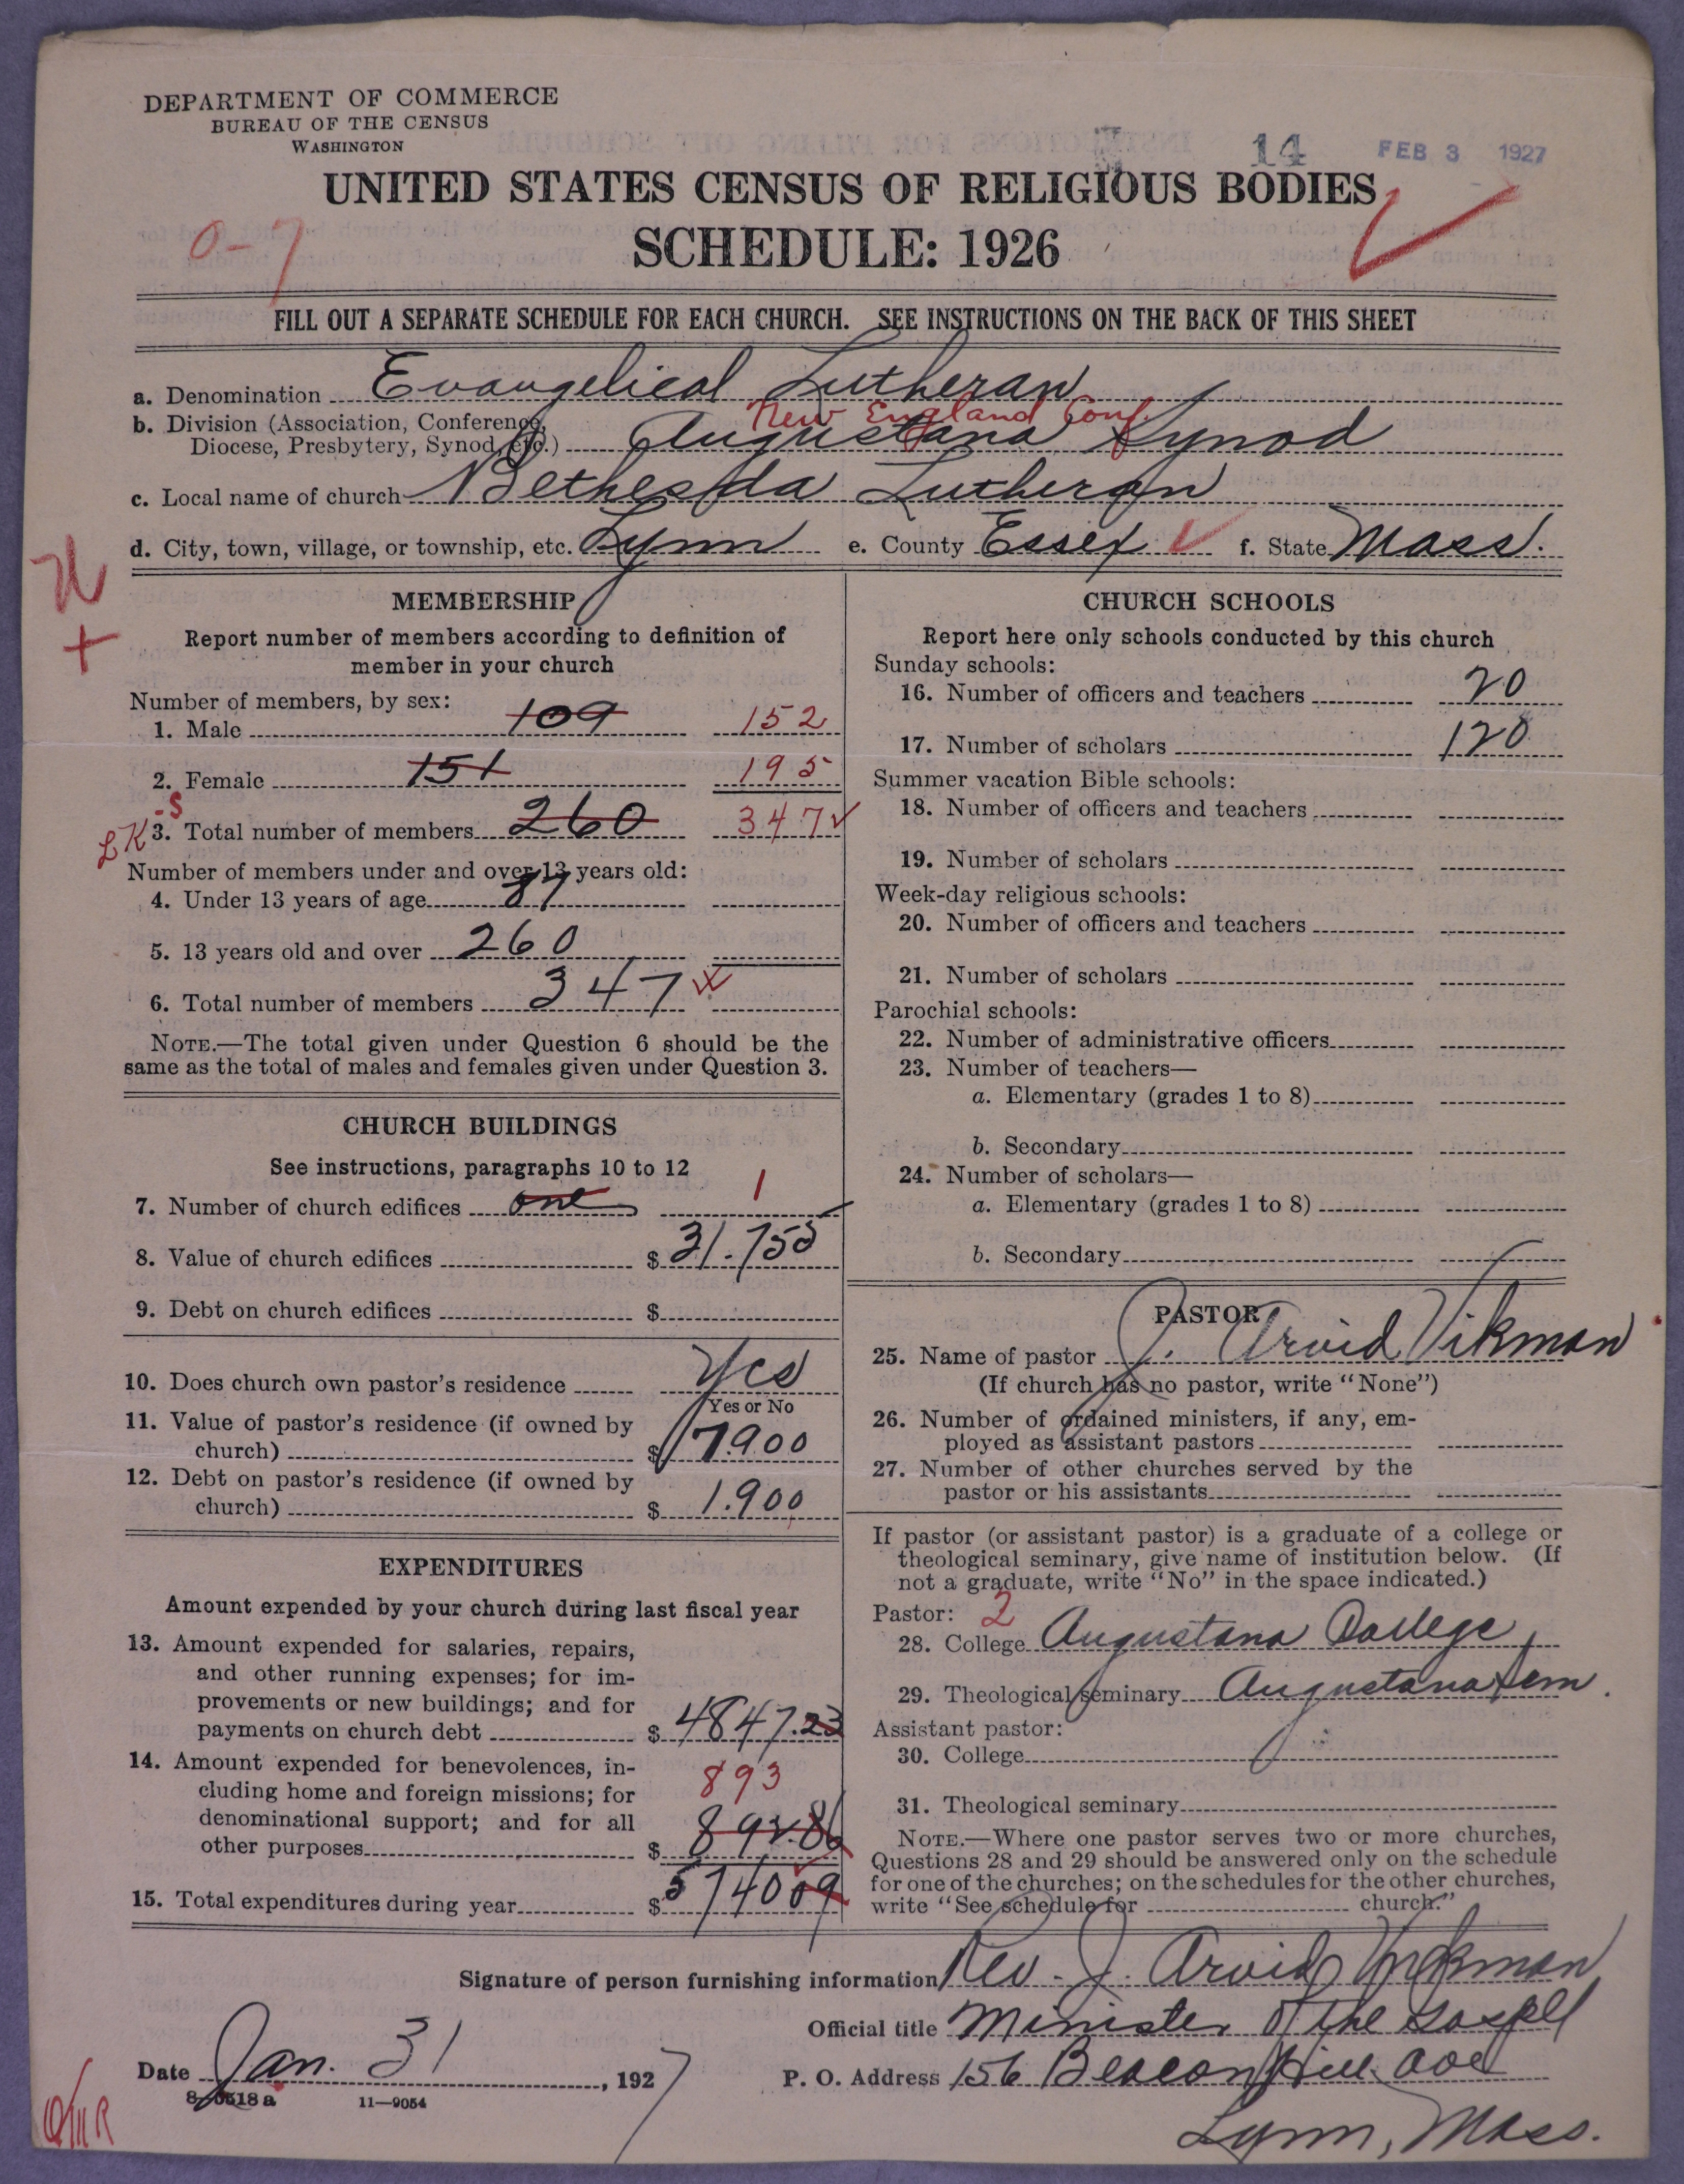 DEPARTMENT OF COMMERCE
BUREAU OF THE CENSUS
WASHINGTON
14 FEB 3 1927
UNITED STATES CENSUS OF RELIGIOUS BODIES
0-7
SCHEDULE: 1926
FILL OUT A SEPARATE SCHEDULE FOR EACH CHURCH. SEE INSTRUCTIONS ON THE BACK OF THIS SHEET
a. Denomination Evangelical Lutheran
New England Conf.
b. Division (Association, Conference, Diocese, Presbytery, Synod, etc.) Augustana Synod
c. Local name of church Bethesda Lutheran
d. City, town, village, or township, etc. Lynn e. County Essex f. State Mass.
MEMBERSHIP
Report number of members according to definition of
member in your church
Number of members, by sex:
1. Male 109 152
2. Female 151 195
-S
LK 3. Total number of members 260 347
Number of members under and over 13 years old:
4. Under 13 years of age 87
5. 13 years old and over 260
6. Total number of members 347
NOTE.—The total given under Question 6 should be the
same as the total of males and females given under Question 3.
CHURCH BUILDINGS
See instructions, paragraphs 10 to 12
7. Number of church edifices one 1
8. Value of church edifices $ 31.755
9. Debt on church edifices $
10. Does church own pastor's residence Yes
Yes or No
11. Value of pastor's residence (if owned by
church) $ 7.900
12. Debt on pastor's residence (if owned by
church) $ 1.900
EXPENDITURES
Amount expended by your church during last fiscal year
13. Amount expended for salaries, repairs,
and other running expenses; for im-
provements or new buildings; and for
payments on church debt $ 4847.23
14. Amount expended for benevolences, in-
cluding home and foreign missions; for
893
denominational support; and for all
other purposes $ 892.86
15. Total expenditures during year $ 574009
CHURCH SCHOOLS
Report here only schools conducted by this church
Sunday schools:
16. Number of officers and teachers 20
17. Number of scholars 120
Summer vacation Bible schools:
18. Number of officers and teachers
19. Number of scholars
Week-day religious schools:
20. Number of officers and teachers
21. Number of scholars
Parochial schools:
22. Number of administrative officers
23. Number of teachers—
a. Elementary (grades 1 to 8)
b. Secondary
24. Number of scholars—
a. Elementary (grades 1 to 8)
b. Secondary
PASTOR
25. Name of pastor J. Arvid Vikman
(If church has no pastor, write "None")
26. Number of ordained ministers, if any, em-
ployed as assistant pastors
27. Number of other churches served by the
pastor or his assistants
If pastor (or assistant pastor) is a graduate of a college or
theological seminary, give name of institution below. (If
not a graduate, write "No" in the space indicated.)
Pastor: 2
28. College Augustana College
29. Theological seminary Augustana Sem.
Assistant pastor:
30. College
31. Theological seminary
NOTE.—Where one pastor serves two or more churches,
Questions 28 and 29 should be answered only on the schedule
for one of the churches; on the schedules for the other churches,
write "See schedule for church."
Signature of person furnishing information Rev. J. Arvid Vikman
Official title Minister of the Gospel
Date Jan. 31, 1927 P. O. Address 156 Beacon Hill Ave
8-0518 a 11-9054
Lynn, Mass.